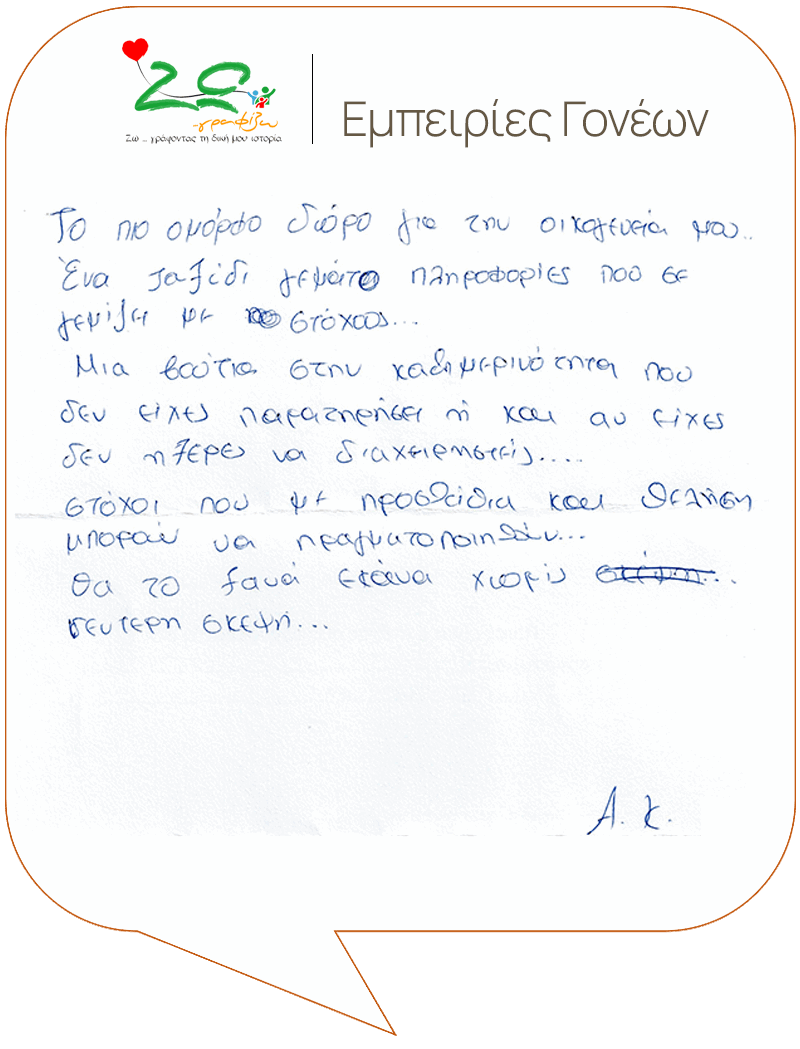 ΖΩ
-γραφίζω
Ζω ... γράφοντας τη δική μου ιστορία
Εμπειρίες Γονέων
Το πιο ομόρφο δώρο για την οικογενεία μου..
Ένα ταξίδι γεμάτο πληροφορίες που σε
γεμίζει με στόχους...
Μια βούτια στην καθημερινότητα που
δεν είχες παρατηρήσει ή και αν είχες
δεν ηξερες να διαχειρηστείς.....
στόχοι που με προσθείθια και θελήση
μπορούν να πραγματοποιηθούν...
θα το ξανά εκάνα χωρίς σκέψη...
δευτερη σκεψή...
Α. Κ.